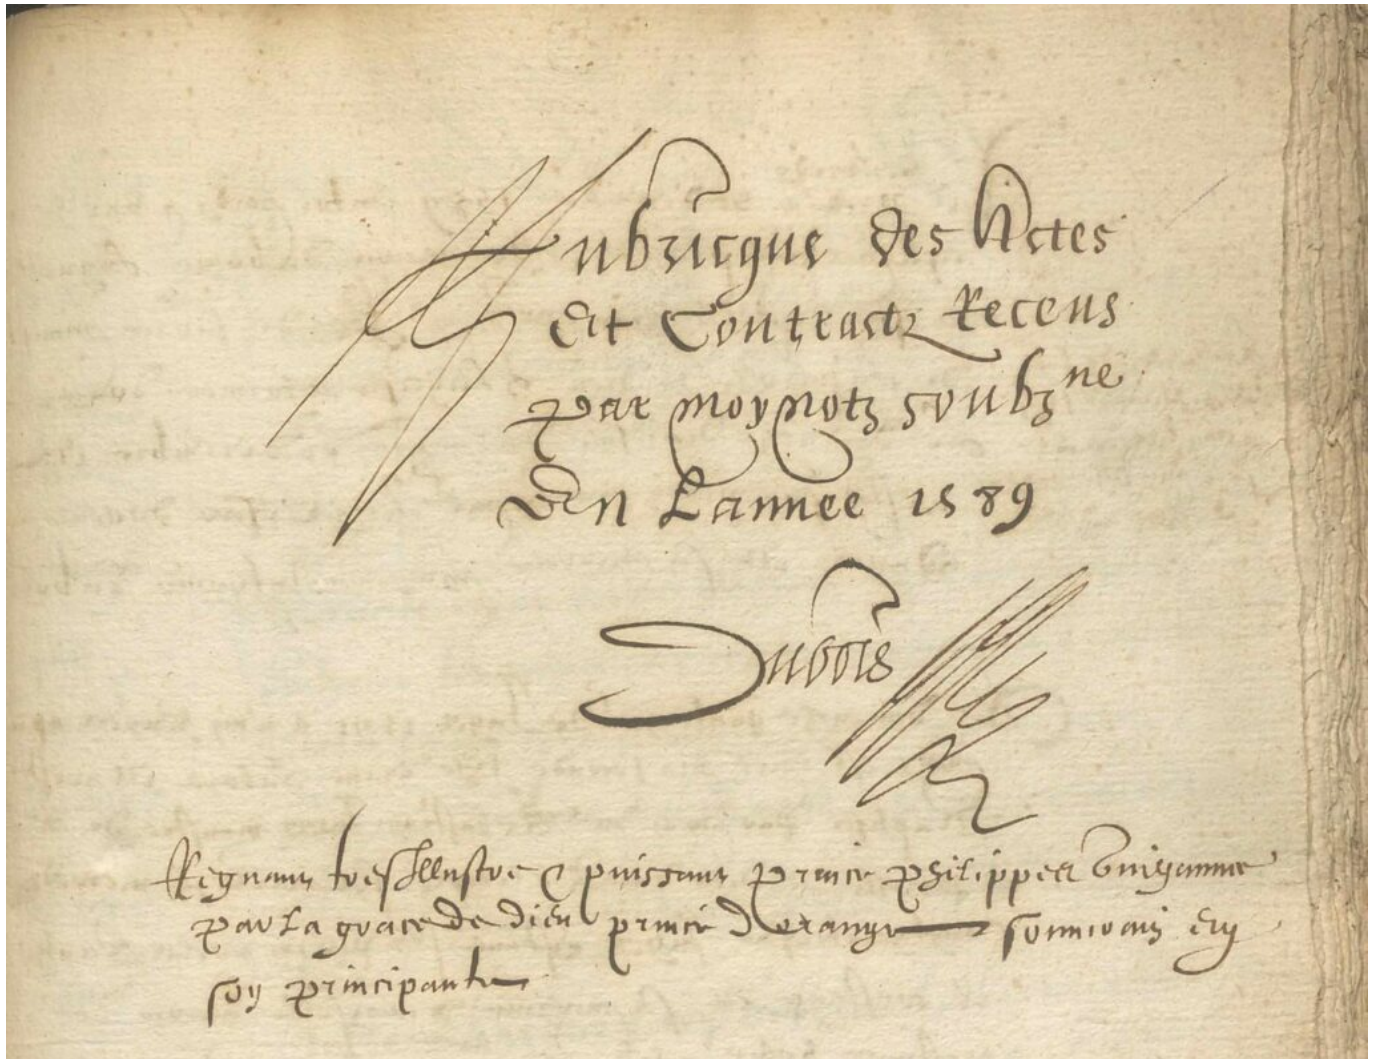 Rubricque des Actes
Et Contractz Receus
par moy notz soubzne
En Lannee 1589
Dubois
Regnant tres Illustre & puissant prince philippes Guilhaume
par la grace de dieu prince d'orange souverain en
son principaulte